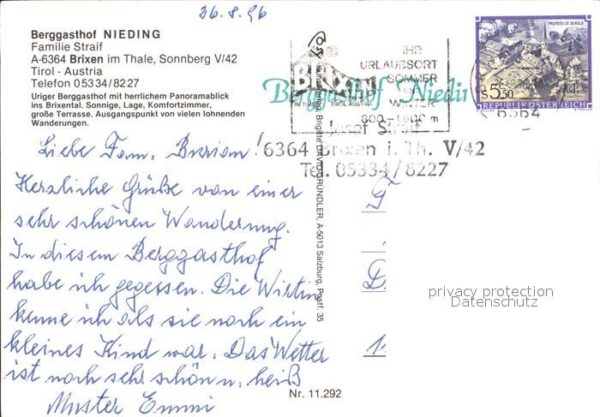 26.8.96
Berggasthof NIEDING
Familie Straif
A-6364 Brixen im Thale, Sonnberg V/42
Tirol - Austria
Telefon 05334/8227
Uriger Berggasthof mit herrlichem Panoramablick
ins Brixental. Sonnige, Lage, Komfortzimmer,
große Terrasse. Ausgangspunkt von vielen lohnenden
Wanderungen.
Liebe Fam.
Herzliche Grüße von einer
sehr schönen Wanderung.
In diesem Berggasthof
habe ich gegessen. Die Wirtin
kenne ich als sie noch ein
kleines Kind war. Das Wetter
ist noch sehr schön u. heiß
Muster Emmi
BRIXEN
IHR
URLAUBSORT
SOMMER
WINTER
800-1800 m
6364
S 5.50
REPUBLIK ÖSTERREICH
Berggasthof Nieding
Josef Straif
6364 Brixen i. Th. V/42
Tel. 05334/8227
A-5013 Salzburg, Postf. 35
Nr. 11.292
privacy protection
Datenschutz